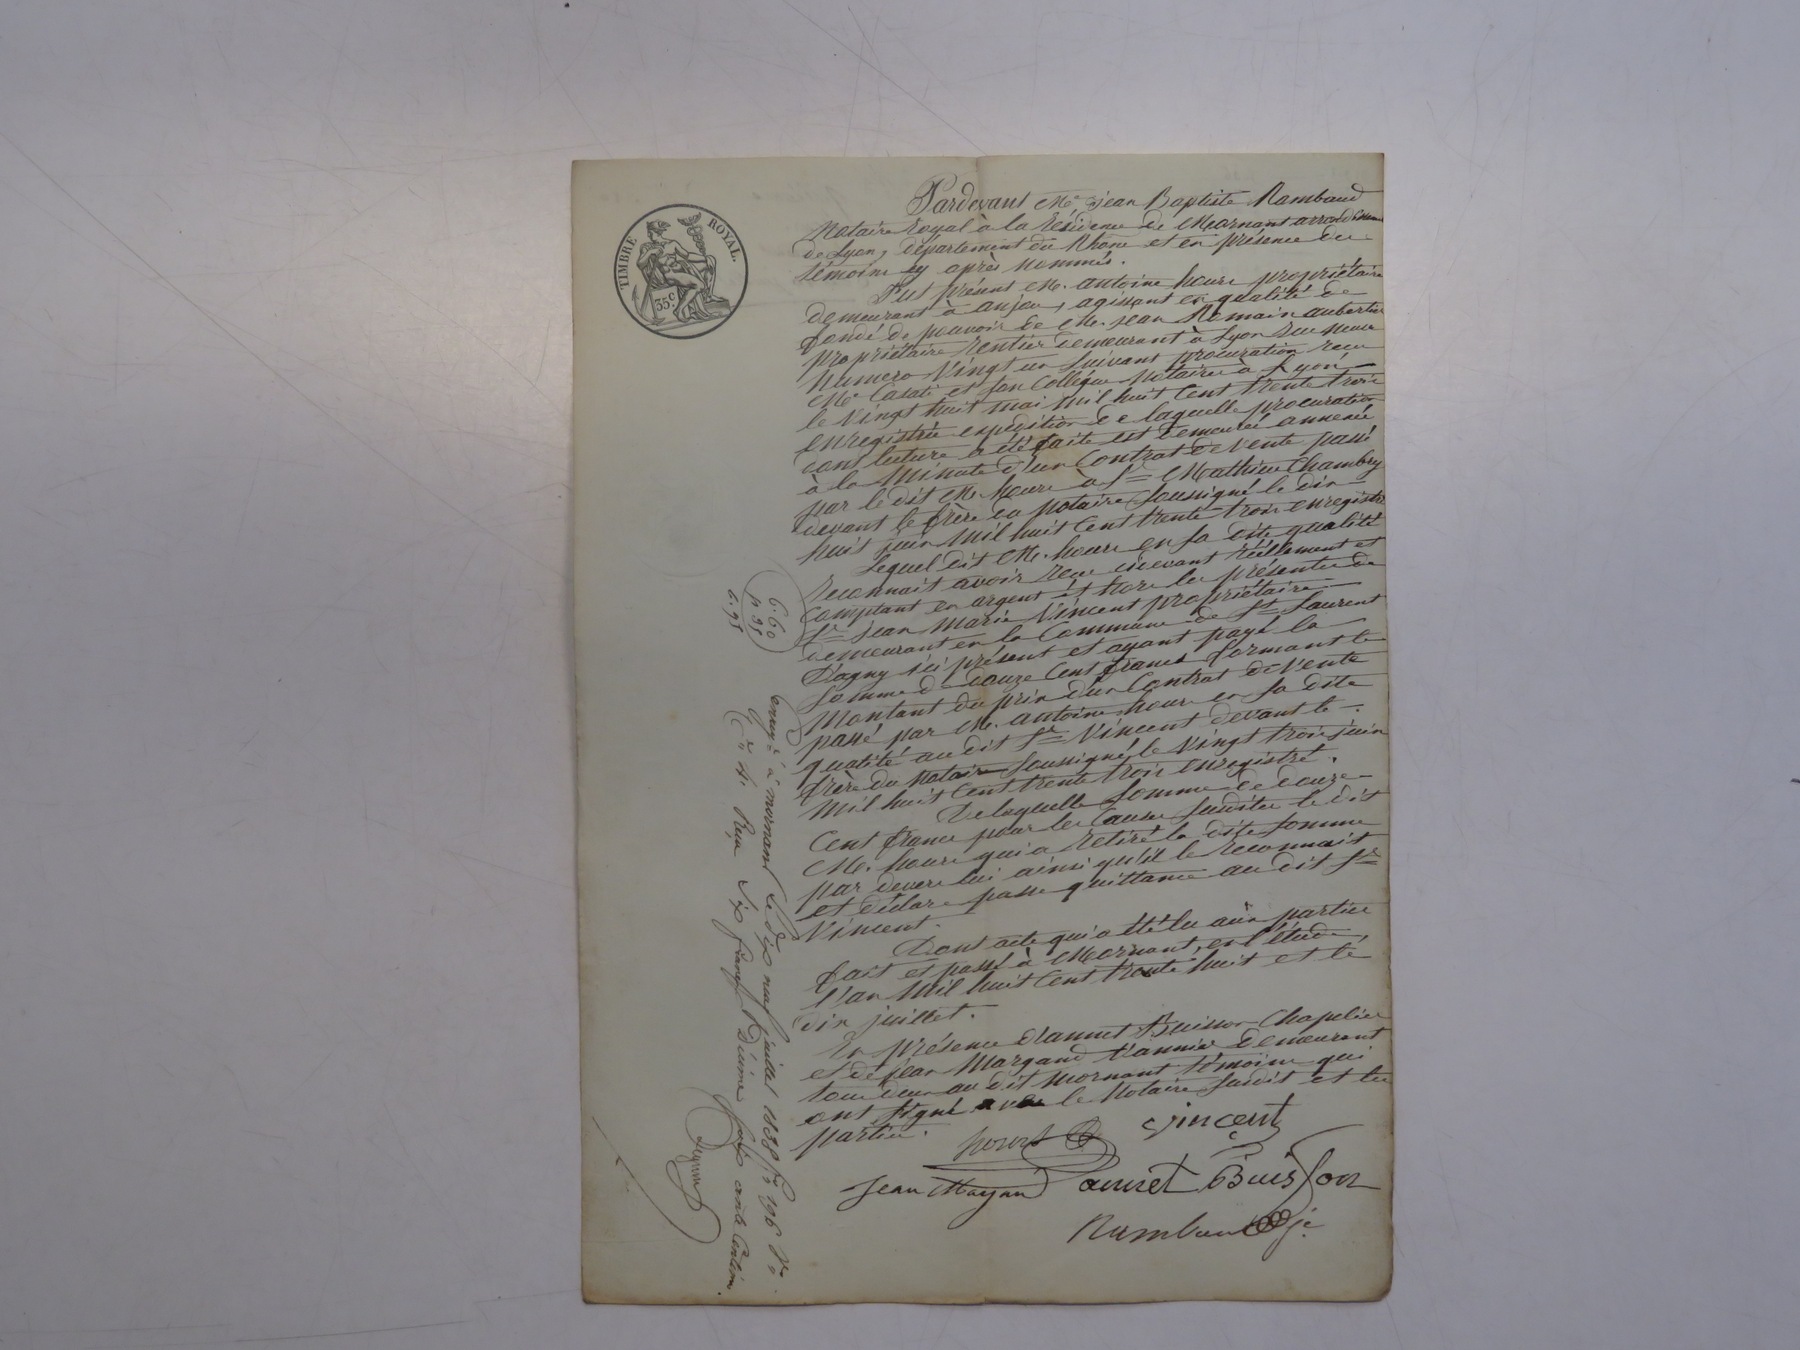 TIMBRE ROYAL.
35c
Pardevant Me jean Baptiste Rambaud
Notaire royal à la résidence de Mornant arrondissement
de Lyon, département du Rhône et en présence des
témoins cy après nommés.
Fut présent M. antoine houre propriétaire
demeurant à anjou, agissant en qualité de
fondé de pouvoir de M. jean Romain aubertier
propriétaire rentier demeurant à Lyon rue neuve
Numero Vingt un suivant procuration recue
Me Casati et son Collégue Notaires à Lyon
le vingt huit mai mil huit Cent trente trois
enregistrée expédition de laquelle procuration
dont lecture a été faite est demeurée annexée
à la Minute d'un Contrat de Vente passé
par le dit M. houre à Sr Mathieu Chambry
devant le frère du notaire soussigné le dix
huit juin mil huit Cent trente trois enregistré
Lequel dit M. houre en sa dite qualité
reconnait avoir recu cidevant réellement et
comptant en argent et hors les présentes de
Sr jean Marie Vincent propriétaire
demeurant en la Commune de St Laurent
D'agny ici présent et ayant payé la
somme de douze Cent francs formant le
Montant du prix d'un Contrat de Vente
passé par M. antoine houre en sa dite
qualité au dit Sr Vincent devant le
frère du Notaire soussigné le Vingt trois juin
mil huit Cent trente trois enregistré.
De laquelle somme de douze
Cent francs pour les Causes susdites le dit
M. houre qui a retiré la dite somme
par devers lui ainsi qu'il le reconnait
et déclare passe quittance au dit Sr
Vincent.
Dont acte qui a été lu aux parties
fait et passé à Mornant, en l'étude,
l'an mil huit Cent trente huit et le
dix juillet.
En présence d'annet Buisson Chapelier
et de jean Margand demeurant
tous deux au dit Mornant témoins qui
ont signé avec le Notaire susdit et les
parties.
Vincent
Jean Margand annet Buisson
Rambaud je
6.60
p 35
6.95
à mornant le dix neuf juillet 1838 fo 196 Vo
Co 4. Reçu Six francs Décime soixante Centimes